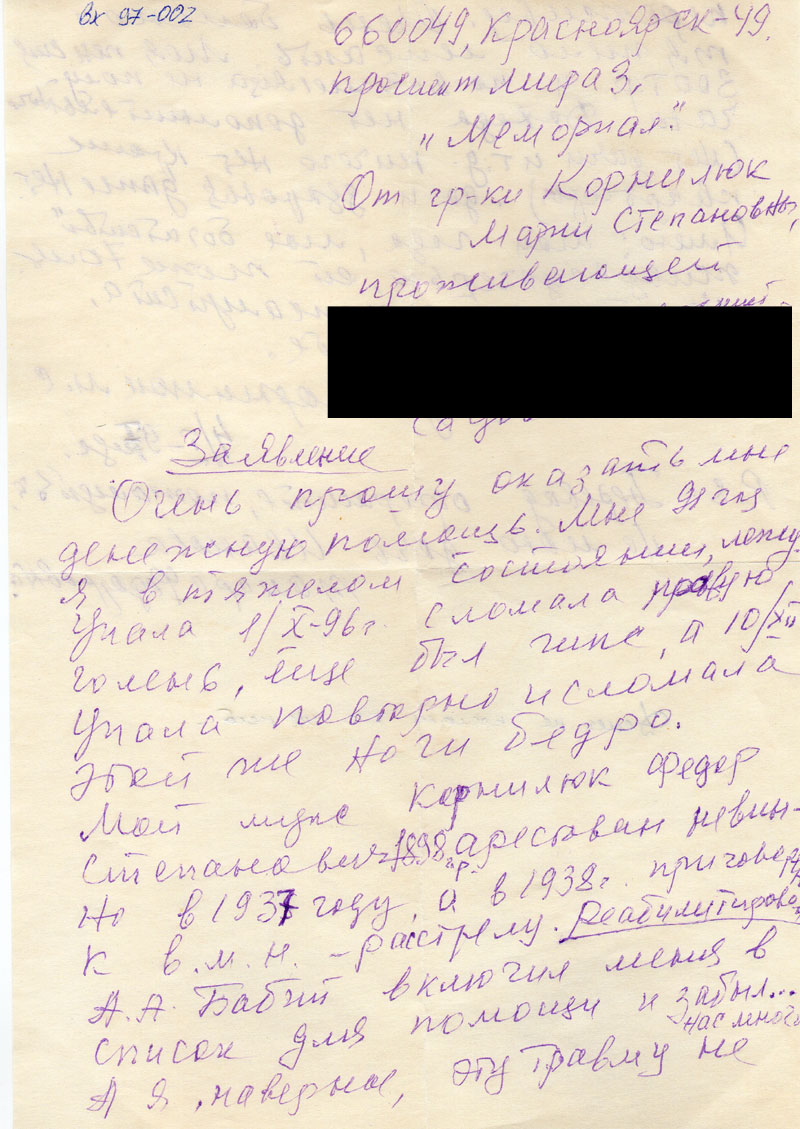 вх 97-002
660049, Красноярск-49.
проспект мира 3,
"Мемориал".
От гр-ки Корнилюк
Марии Степановны,
проживающей
Заявление
Очень прошу оказать мне
денежную помощь. Мне 91 год
я в тяжелом состоянии, лежу
Упала 1/X-96г. сломала правую
голень, еще был гипс, а 10/XII
упала повторно и сломала
этой же ноги бедро.
Мой муж Корнилюк Федор
Степанович 1898 г.р. арестован невин-
но в 1937 году, а в 1938г. приговорен
к в.м.н. - расстрелу. Реабилитирован
А.А. Бабий включил меня в
список для помощи и забыл...
нас много
А я, наверное, эту травму не